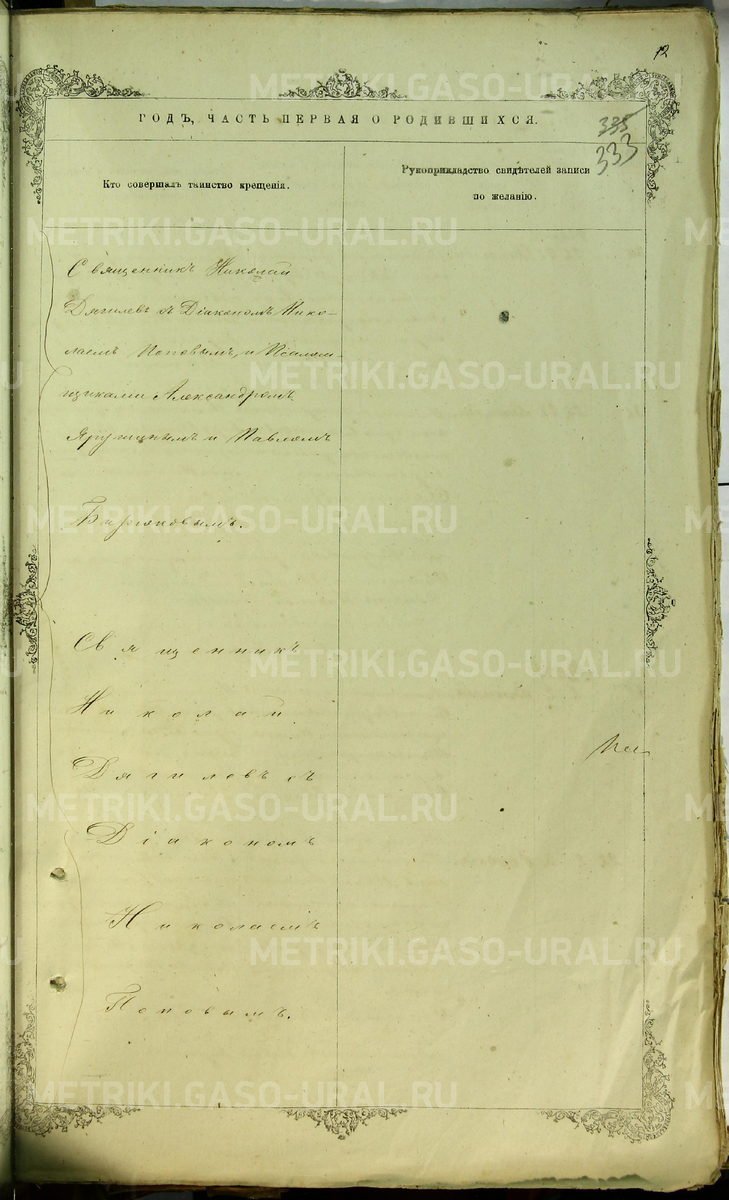 12
ГОДЪ, ЧАСТЬ ПЕРВАЯ О РОДИВШИХСЯ.
335
333
Кто совершалъ таинство крещенія.
Рукоприкладство свидѣтелей записи
по желанію.
Священникъ Николай
Дягилевъ съ Діакономъ Нико-
лаемъ Поповымъ, и Псалом-
щиками Александромъ
и Павломъ
Священникъ
Николай
Дягилевъ съ
Діакономъ
Николаемъ
Поповымъ.
METRIKI.GASO-URAL.RU